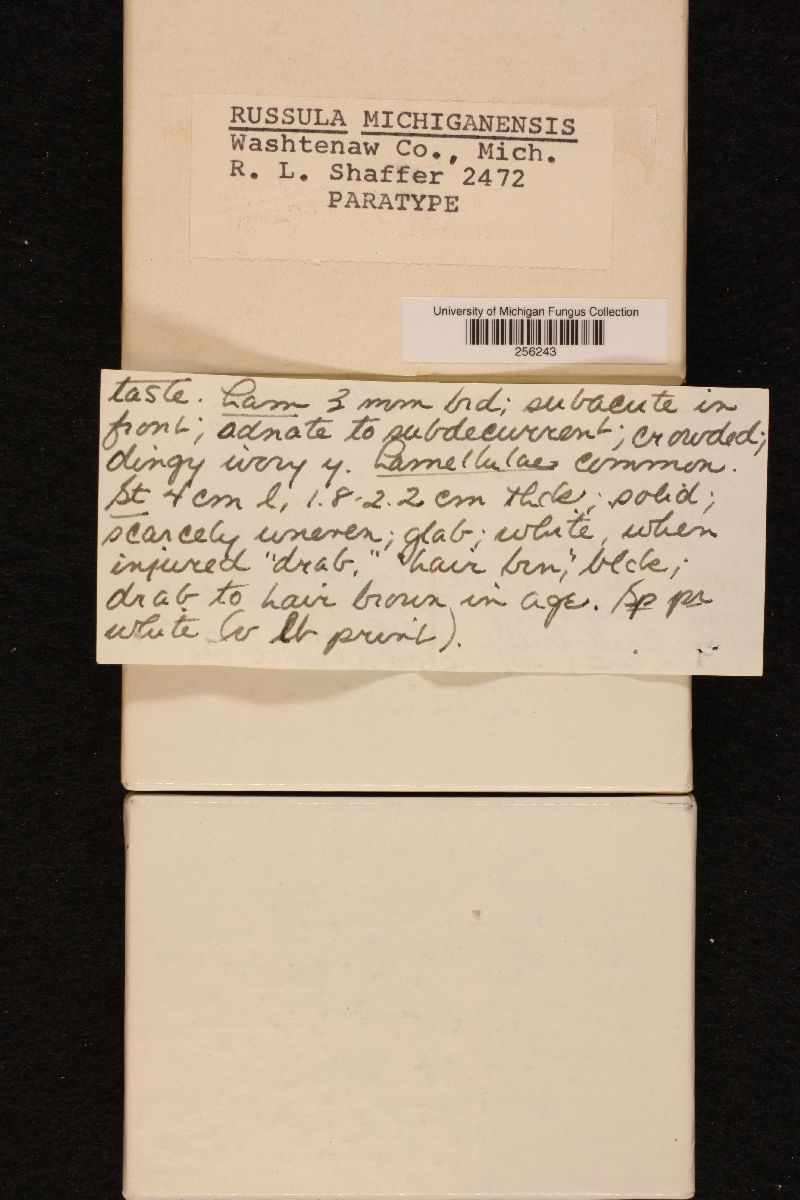 RUSSULA MICHIGANENSIS
Washtenaw Co., Mich.
R. L. Shaffer 2472
PARATYPE
University of Michigan Fungus Collection
256243
taste. Lam 3 mm brd; subacute in
front; adnate to subdecurrent; crowded;
dingy ivory y. Lamellulae common.
St 4 cm l, 1.8-2.2 cm thck; solid;
scarcely uneven; glab; white, when
injured "drab," "hair brn," blck;
drab to hair brown in age. Sp pr
white (v lt print).